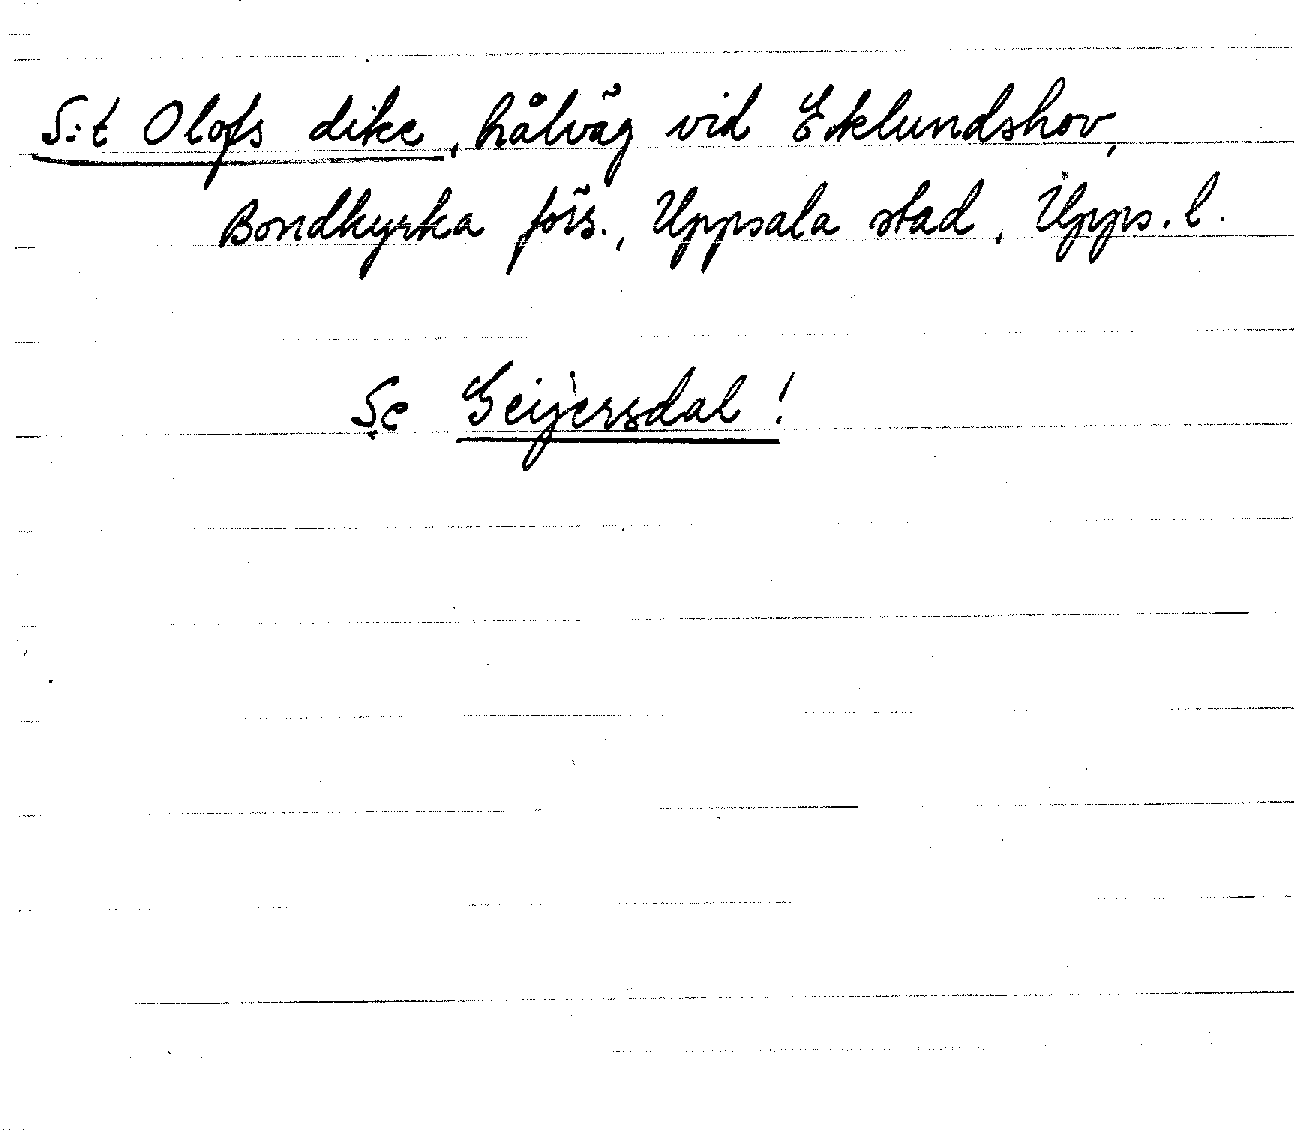 S:t Olofs dike, hålväg vid Eklundshov,
Bondkyrka förs., Uppsala stad, Upps. l.
Se Geijersdal!